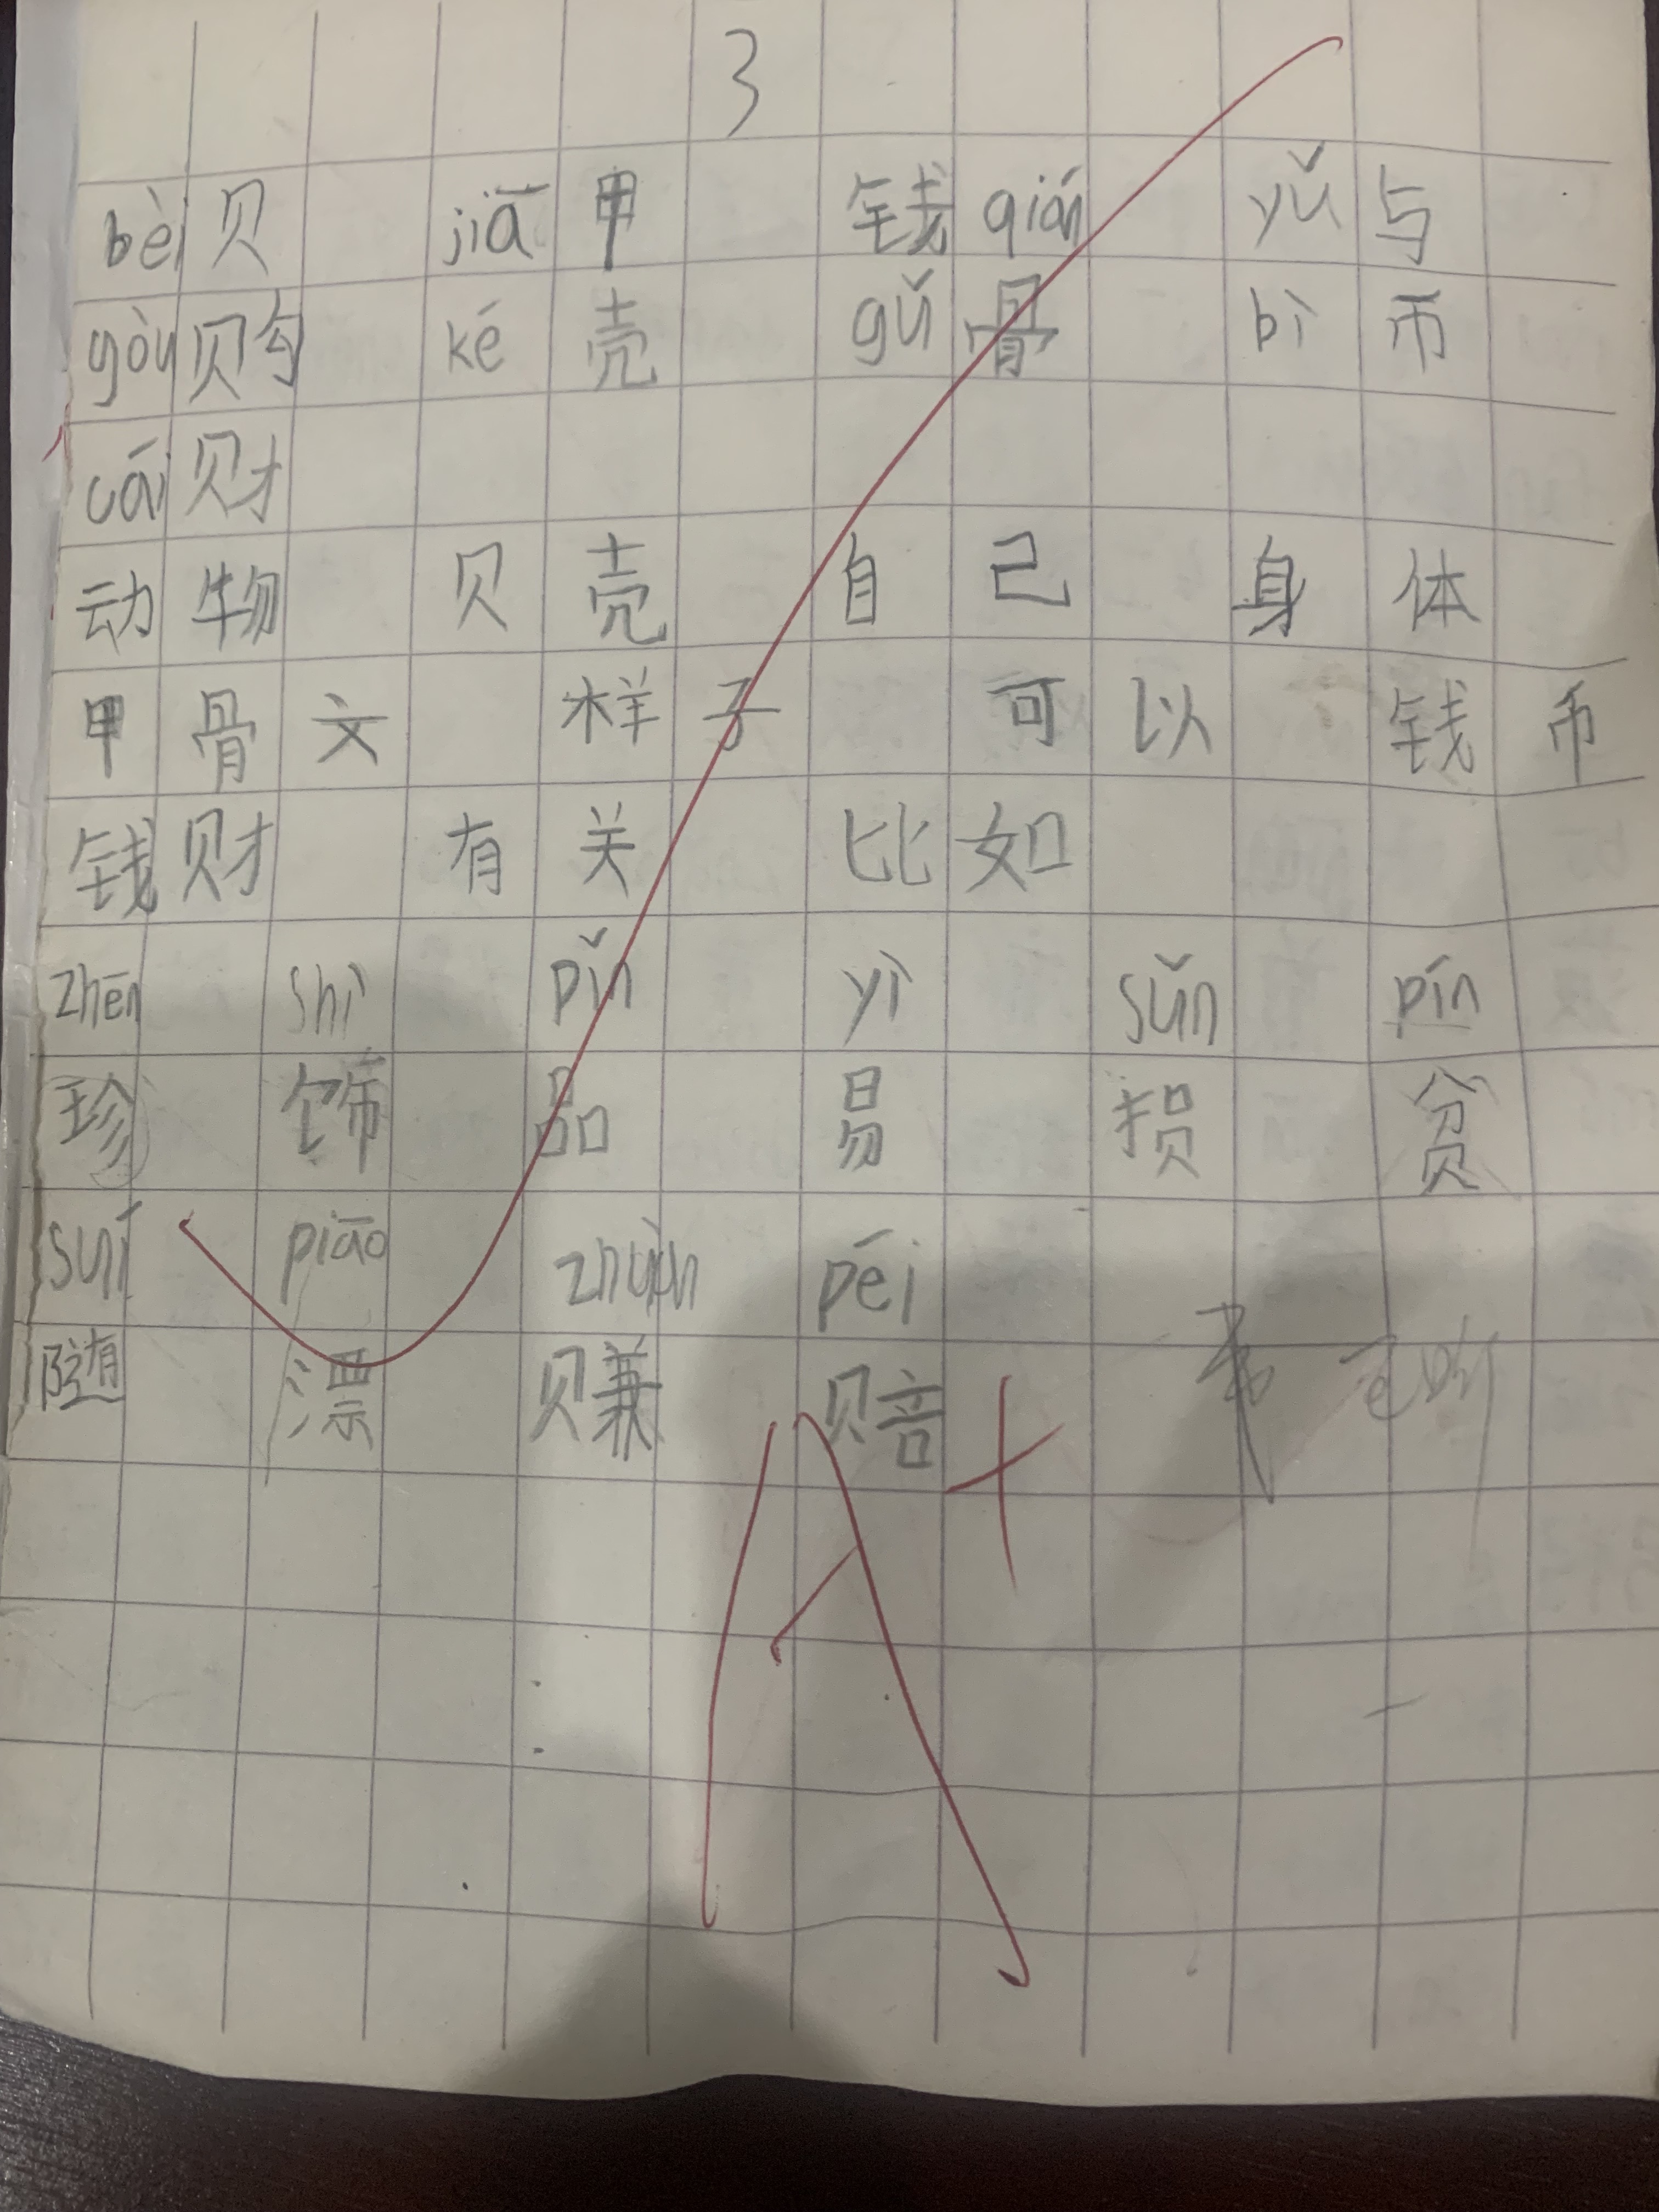 3
bèi 贝 jiā 甲 钱 qián yǔ 与
gòu 购 ké 壳 gǔ 骨 bì 币
cái 财
动物 贝壳 自己 身体
甲骨文 样子 可以 钱币
钱财 有关 比如
zhēn shì pǐn yì sǔn pín
珍 饰 品 易 损 贫
suí piāo zhuàn péi
随 漂 赚 赔
A+